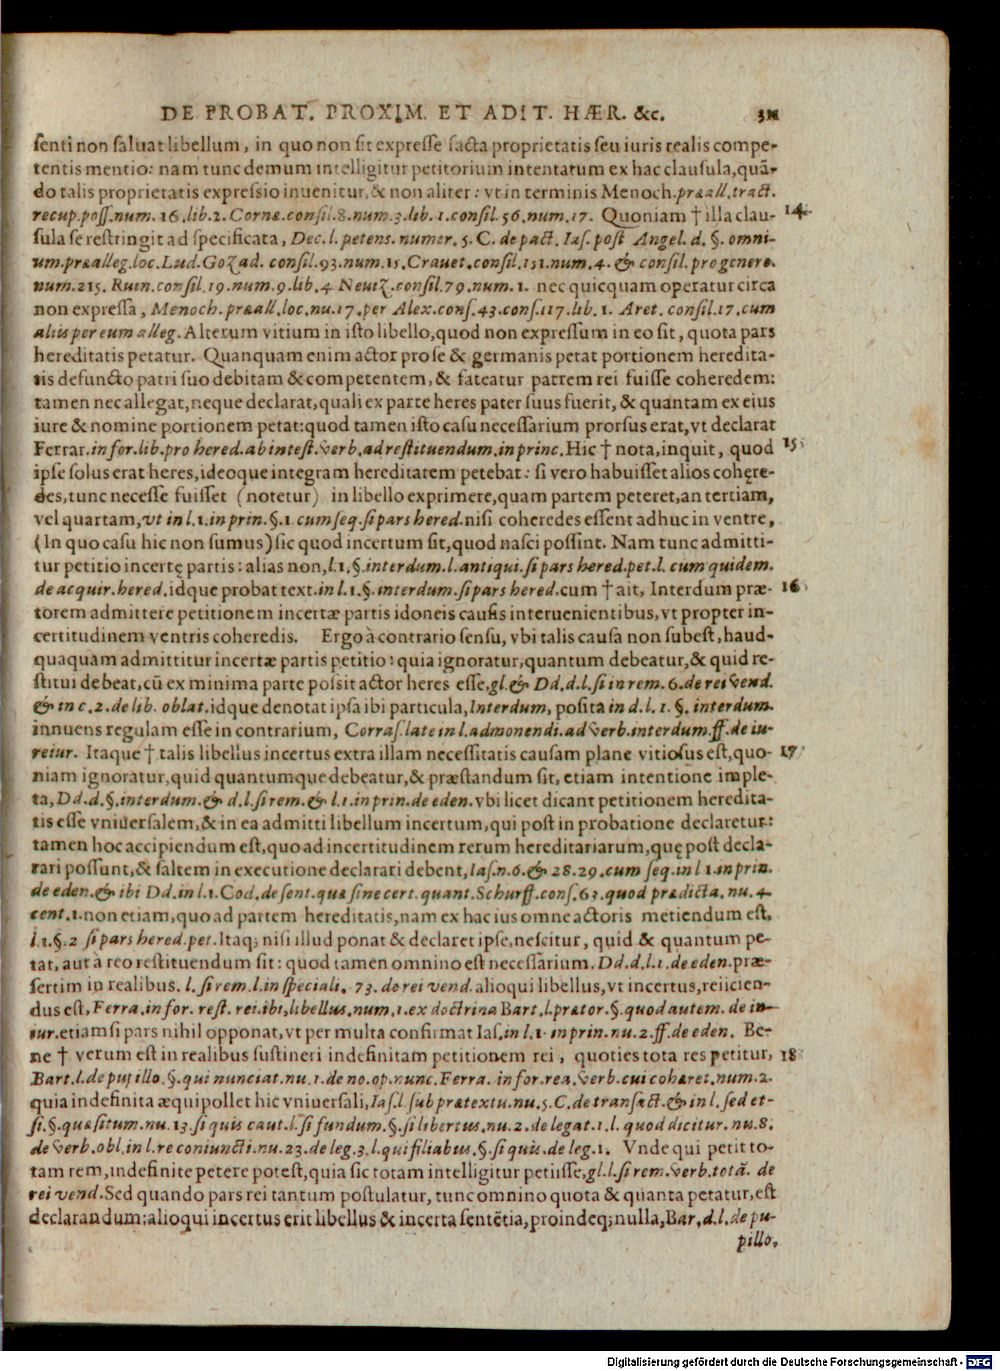 DE PROBAT. PROXIM. ET ADIT. HÆR. &c. 311
senti non saluat libellum, in quo non sit expresse facta proprietatis seu iuris realis compe-
tentis mentio: nam tunc demum intelligitur petitorium intentatum ex hac clausula, quā-
do talis proprietatis expressio inuenitur, & non aliter: vt in terminis Menoch. præall. tract.
recup. poss. num. 16. lib. 2. Cornæ. consil. 8. num. 3. lib. 1. consil. 56. num. 17. Quoniam † illa clau- 14
sula se restringit ad specificata, Dec. l. petens. numer. 5. C. de pact. Ias. post Angel. d. §. omni-
um. præalleg. loc. Lud. Gozad. consil. 93. num. 15. Crauet. consil. 151. num. 4. & consil. pro genere.
num. 215. Ruin. consil. 19. num. 9. lib. 4 Neuiz. consil. 79. num. 1. nec quicquam operatur circa
non expressa, Menoch. præall. loc. nu. 17. per Alex. cons. 43. cons. 117. lib. 1. Aret. consil. 17. cum
aliis per eum alleg. Alterum vitium in isto libello, quod non expressum in eo sit, quota pars
hereditatis petatur. Quanquam enim actor pro se & germanis petat portionem heredita-
tis defuncto patri suo debitam & competentem, & fateatur patrem rei fuisse coheredem:
tamen nec allegat, neque declarat, quali ex parte heres pater suus fuerit, & quantam ex eius
iure & nomine portionem petat: quod tamen isto casu necessarium prorsus erat, vt declarat
Ferrar. in for. lib. pro hered. ab intest. verb. ad restituendum. in princ. Hic † nota, inquit, quod 15
ipse solus erat heres, ideoque integram hereditatem petebat: si vero habuisset alios cohęre-
des, tunc necesse fuisset (notetur) in libello exprimere, quam partem peteret, an tertiam,
vel quartam, vt in l. 1. in prin. §. 1. cum seq. si pars hered. nisi coheredes essent adhuc in ventre,
(In quo casu hic non sumus) sic quod incertum sit, quod nasci possint. Nam tunc admitti-
tur petitio incertę partis: alias non, l. 1. §. interdum. l. antiqui. si pars hered. pet. l. cum quidem.
de acquir. hered. idque probat text. in l. 1. §. interdum. si pars hered. cum † ait, Interdum præ- 16
torem admittere petitionem incertæ partis idoneis causis interuenientibus, vt propter in-
certitudinem ventris coheredis. Ergo à contrario sensu, vbi talis causa non subest, haud-
quaquam admittitur incertæ partis petitio: quia ignoratur, quantum debeatur, & quid re-
stitui debeat, cū ex minima parte possit actor heres esse, gl. & Dd. d. l. si in rem. 6. de rei vend.
& in c. 2. de lib. oblat. idque denotat ipsa ibi particula, Interdum, posita in d. l. 1. §. interdum.
innuens regulam esse in contrarium, Corras. late in l. admonendi. ad verb. interdum. ff. de iu-
reiur. Itaque † talis libellus incertus extra illam necessitatis causam plane vitiosus est, quo- 17
niam ignoratur, quid quantumque debeatur, & præstandum sit, etiam intentione imple-
ta, Dd. d. §. interdum. & d. l. si rem. & l. 1. in prin. de eden. vbi licet dicant petitionem heredita-
tis esse vniuersalem, & in ea admitti libellum incertum, qui post in probatione declaretur:
tamen hoc accipiendum est, quo ad incertitudinem rerum hereditariarum, quę post decla-
rari possunt, & saltem in executione declarari debent, Ias. n. 6. & 28. 29. cum seq. in l 1. in prin.
de eden. & ibi Dd. in l. 1. Cod. de sent. quæ sine cert. quant. Schurff. cons. 63. quod prædicta. nu. 4.
cent. 1. non etiam, quo ad partem hereditatis, nam ex hac ius omne actoris metiendum est,
l. 1. §. 2 si pars hered. pet. Itaq; nisi illud ponat & declaret ipse, nescitur, quid & quantum pe-
tat, aut à reo restituendum sit: quod tamen omnino est necessarium. Dd. d. l. 1. de eden. præ-
sertim in realibus. l. si rem. l. in speciali. 73. de rei vend. alioqui libellus, vt incertus, reiicien-
dus est, Ferra. in for. rest. rei. ibi, libellus, num. 1. ex doctrina Bart. l. prætor. §. quod autem. de in-
iur. etiamsi pars nihil opponat, vt per multa confirmat Ias. in l. 1. in prin. nu. 2. ff. de eden. Be-
ne † verum est in realibus sustineri indefinitam petitionem rei, quoties tota res petitur, 18
Bart. l. de pupillo. §. qui nunciat. nu. 1. de no. op. nunc. Ferra. in for. rea. verb. cui cohæret. num. 2.
quia indefinita æquipollet hic vniuersali, Ias. l. sub prætextu. nu. 5. C. de transact. & in l. sed et-
si. §. quæsitum. nu. 13. si quis caut. l. si fundum. §. si libertus. nu. 2. de legat. 1. l. quod dicitur. nu. 8.
de verb. obl. in l. re coniuncti. nu. 23. de leg. 3. l. qui filiabus. §. si quis. de leg. 1. Vnde qui petit to-
tam rem, indefinite petere potest, quia sic totam intelligitur petiisse, gl. l. si rem. verb. totā. de
rei vend. Sed quando pars rei tantum postulatur, tunc omnino quota & quanta petatur, est
declarandum: alioqui incertus erit libellus & incerta sentētia, proindeq; nulla, Bar. d. l. de pu-
pillo.
Digitalisierung gefördert durch die Deutsche Forschungsgemeinschaft - DFG